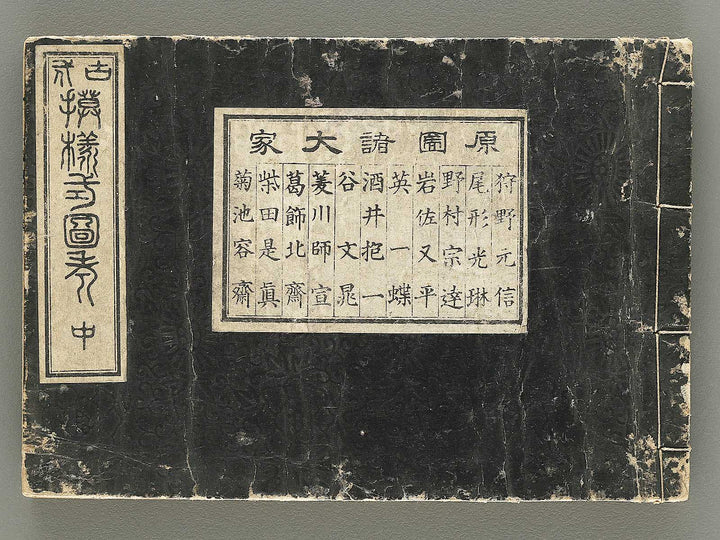 古代
摸樣式圖考
中
原圖諸大家
狩野元信
尾形光琳
野村宗達
岩佐又平
英一蝶
酒井抱一
谷文晁
菱川師宣
葛飾北齋
柴田是眞
菊池容齋